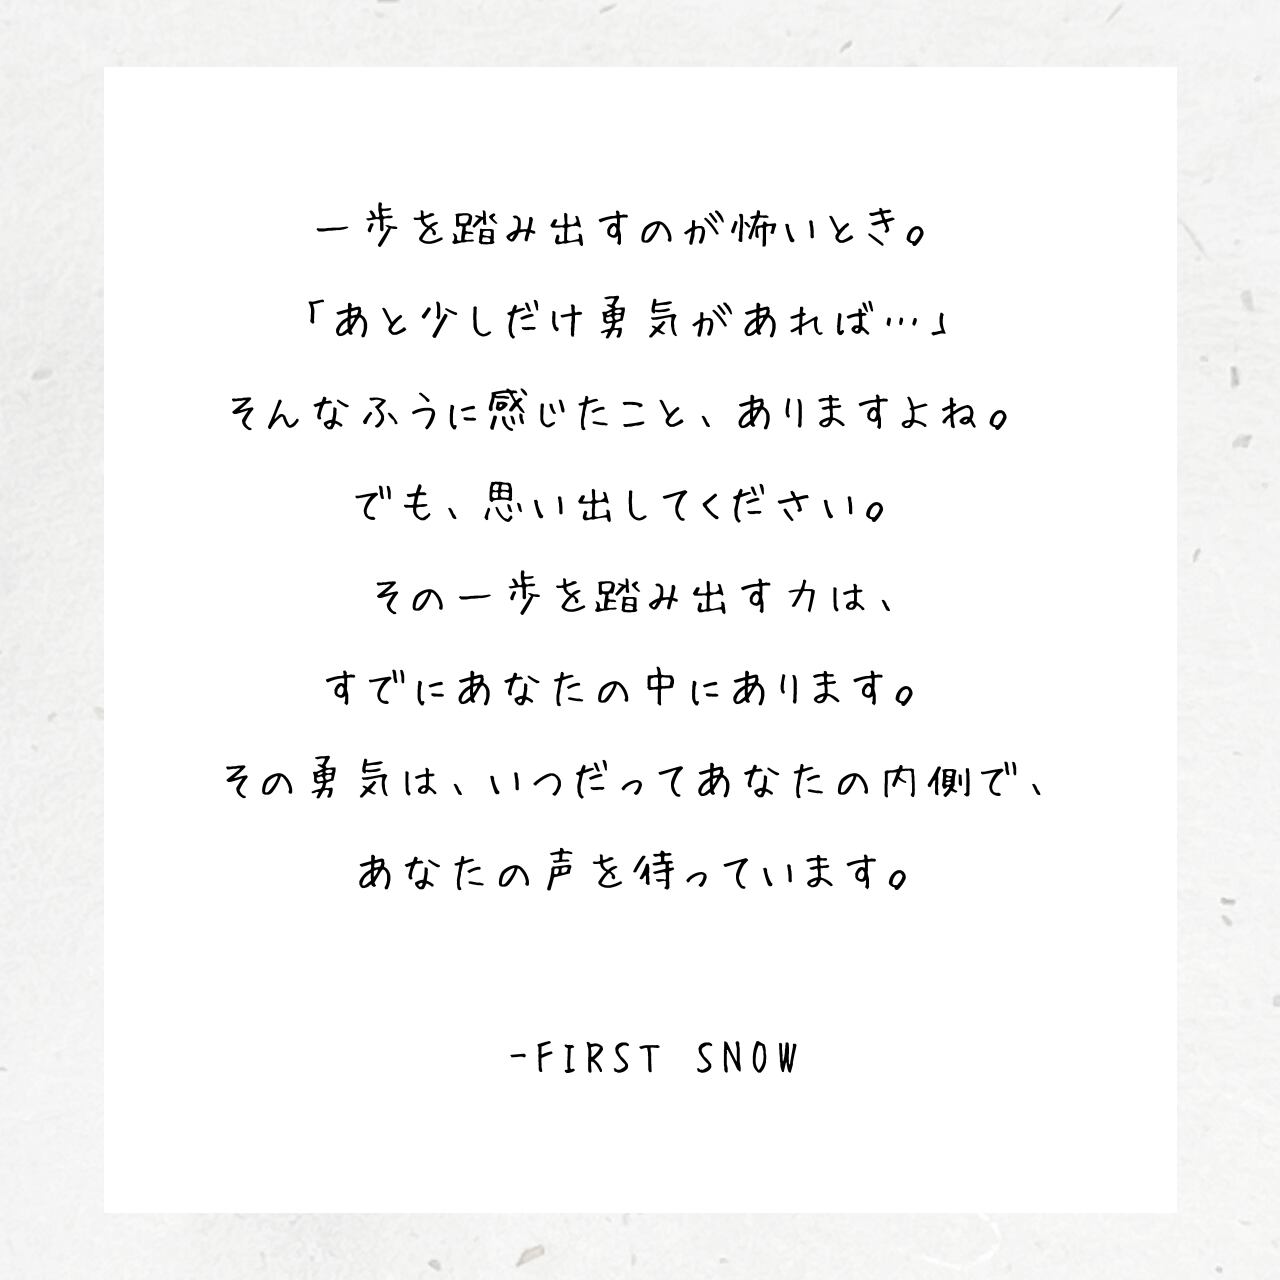 一歩を踏み出すのが怖いとき。
「あと少しだけ勇気があれば…」
そんなふうに感じたこと、ありますよね。
でも、思い出してください。
その一歩を踏み出す力は、
すでにあなたの中にあります。
その勇気は、いつだってあなたの内側で、
あなたの声を待っています。
-FIRST SNOW